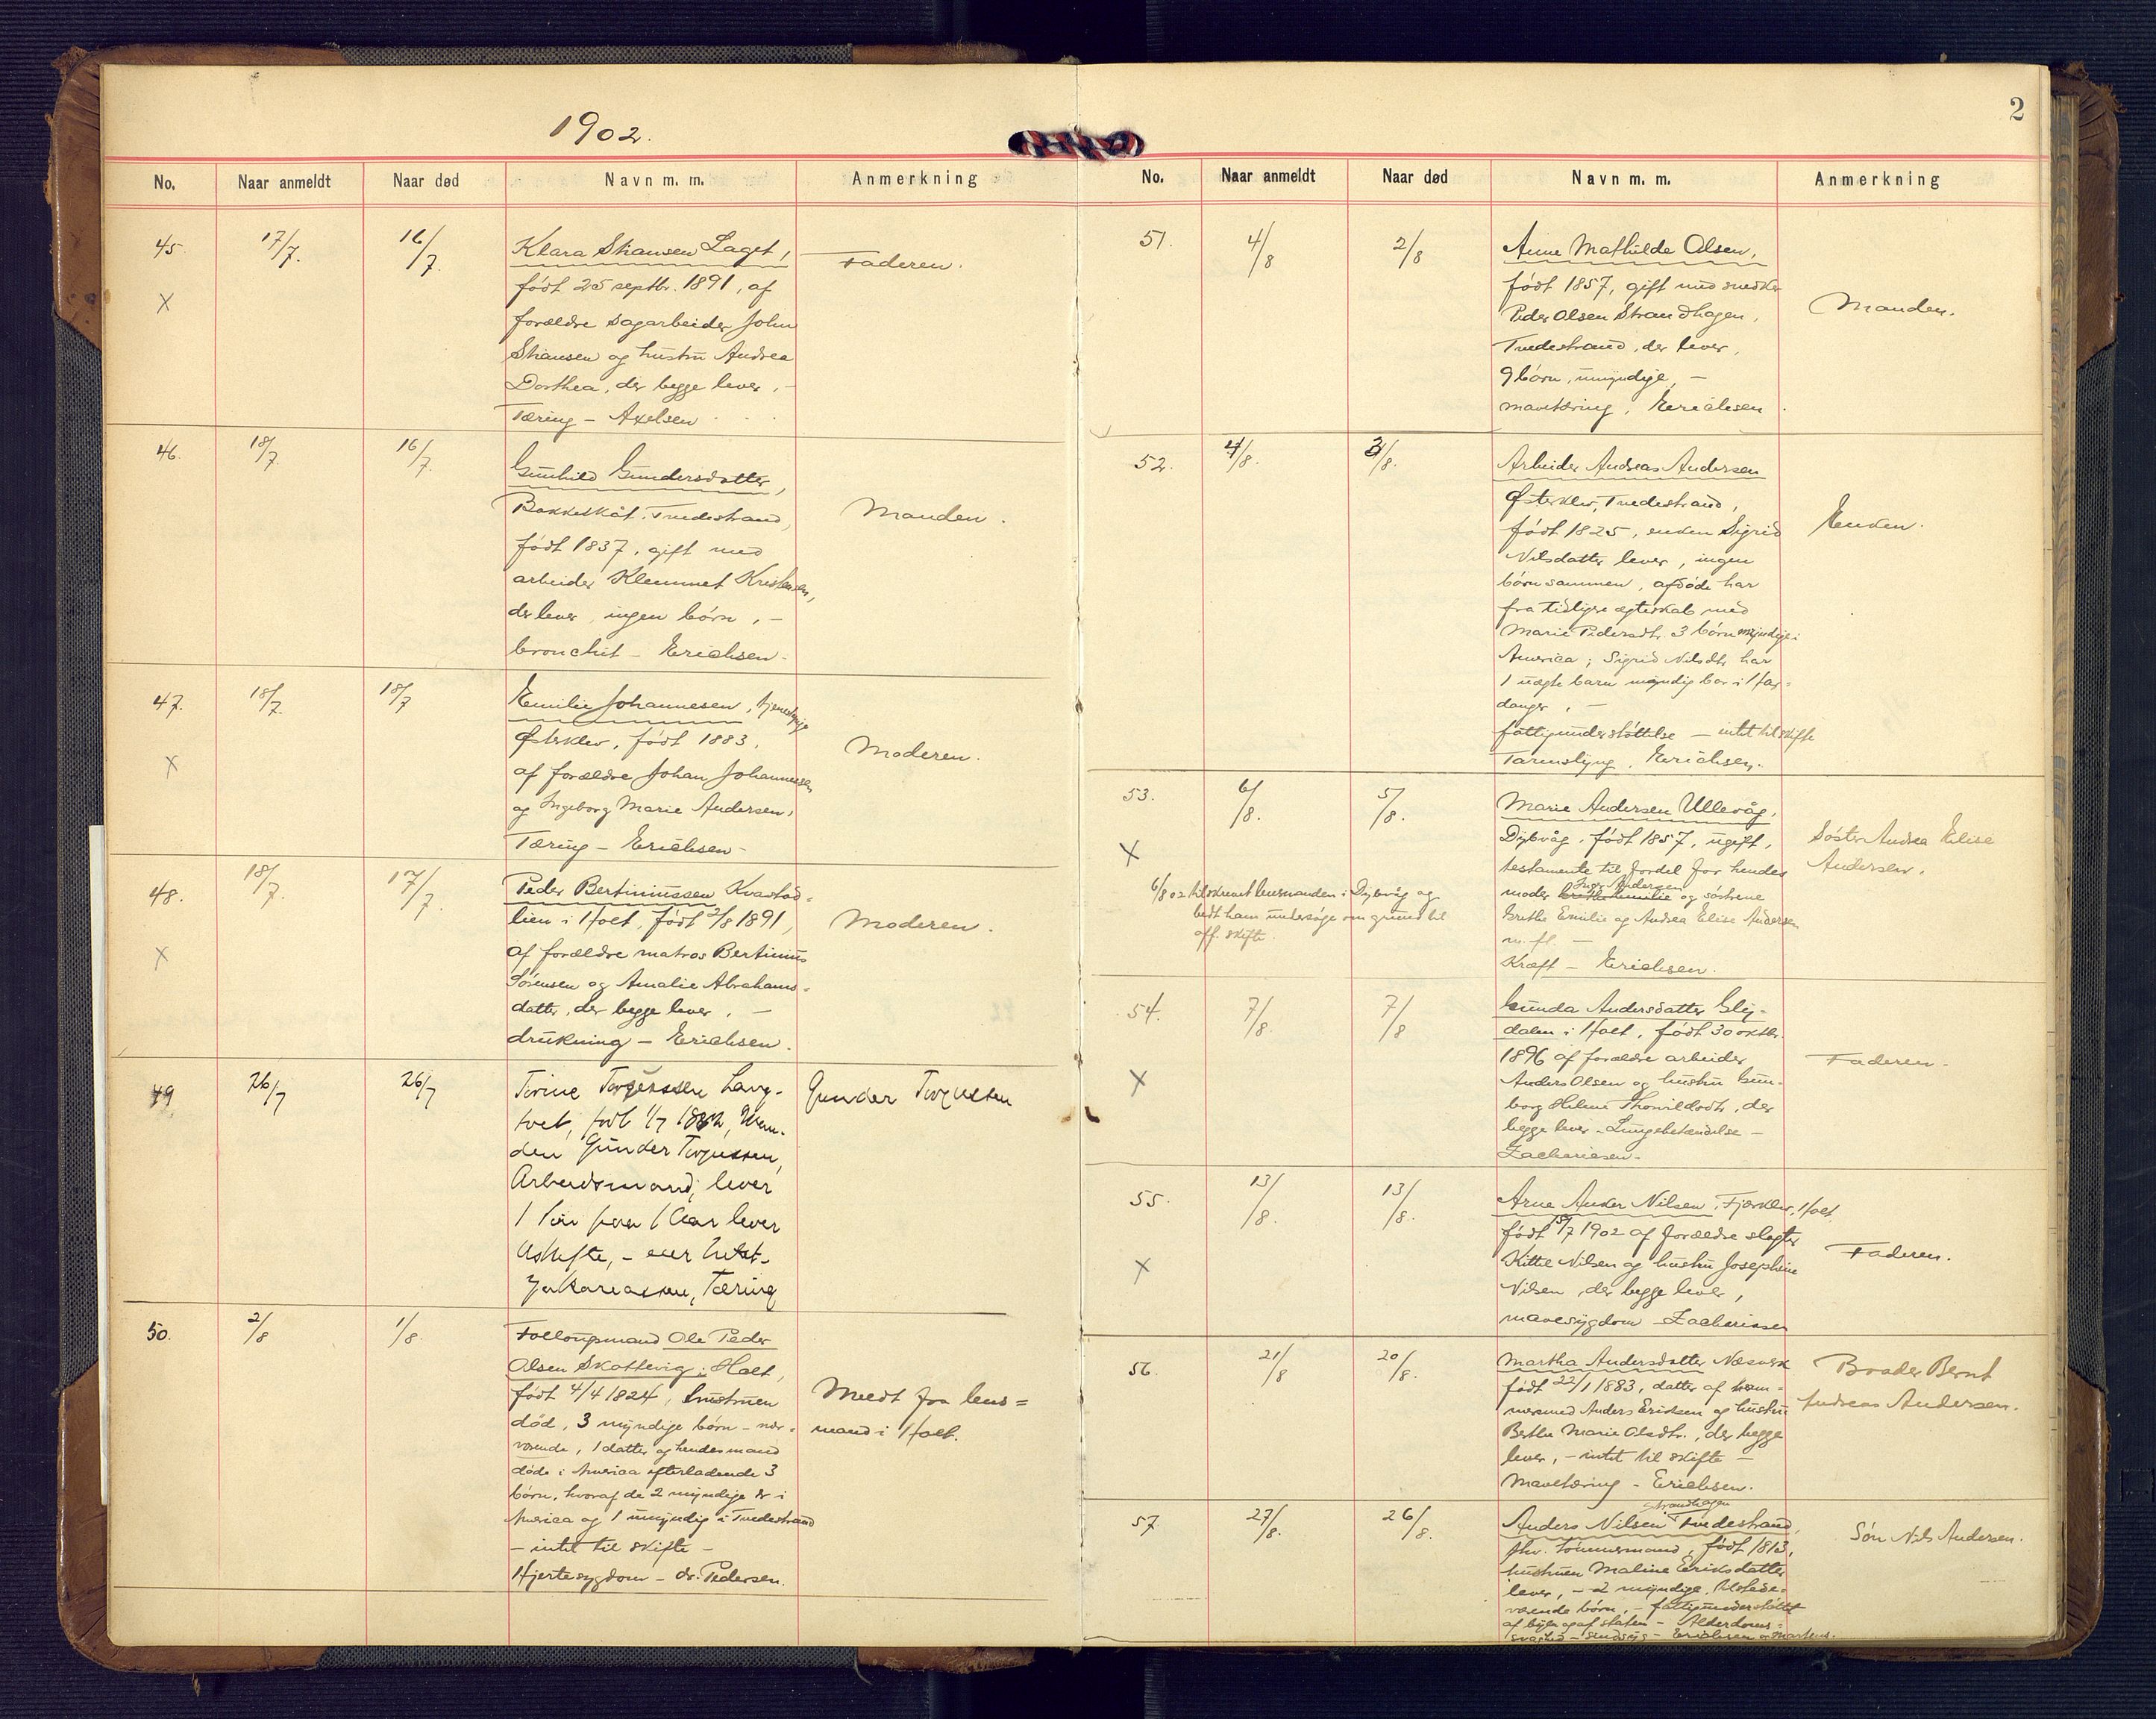 1902.
2
No. Naar anmeldt Naar død Navn m. m. Anmerkning
45 17/7. 16/7. Klara Stiansen Laget,
født 25 septbr. 1891, af
forældre sagarbeider John
Stiansen og hustru Andrea
Dorthea, der begge lever, -
Tæring - Axelsen
Faderen.
X
46. 18/7. 16/7. Gunhild Gundersdatter,
Bakkeskåt, Tvedestrand,
født 1837, gift med
arbeider Klemmet Kristensen,
der lever, ingen børn, -
bronchit - Erichsen -
Manden.
47. 18/7. 18/7 Emilie Johannesen, tjenestepige
Østerklev, født 1883,
af forældre Johan Johannesen
og Ingeborg Marie Andersen,
Tæring - Erichsen -
Moderen.
X
48. 18/7. 17/7. Peder Bertiniussen Kvastad=
lien i Holt, født 2/8 1891,
af forældre matros Bertinius
Sørensen og Amalie Abrahams=
datter, der begge lever, -
drukning - Erichsen.
Moderen.
X
49 26/7 26/7 Torine Torgussen Lang-
tvet, født 1/7 Man-
den Gunder Torgussen,
Arbeidsmand, lever
1 6 Aar lever
Uskifte, -
Zakariassen, Tæring
Gunder Torgussen
50. 2/8 1/8. Follougsmand Ole Peder
Olsen Skottevig i Holt,
født 4/4 1824, hustruen
død, 3 myndige børn - nær=
værende, 1 datter og hendes mand
døde i America efterladende 3
børn, hvoraf de 2 myndige er i
America og 1 umyndig i Tvedestrand
- intet til skifte -
Hjertesygdom - dr. Pedersen.
Meldt fra lens=
mand i Holt.
No. Naar anmeldt Naar død Navn m. m. Anmerkning
51. 4/8 2/8 Anne Mathilde Olsen,
født 1857, gift med snedker
Peder Olsen Strandhagen,
Tvedestrand, der lever,
9 børn, umyndige, -
mavetæring, Erichsen.
Manden.
52. 4/8. 3/8. Arbeider Andreas Andersen
Østerklev, Tvedestrand,
født 1825, enken Sigrid
Nilsdatter lever, ingen
børn sammen, afdøde har
fra tidligere ægteskab med
Marie Pedersdtr. 3 børn myndige i
America; Sigrid Nilsdtr. har
1 uægte barn myndig bor i Har=
danger, -
fattigunderstøttelse - intet til skifte
Tarmslyng. Erichsen.
Enken.
53. 6/8. 5/8. Marie Andersen Ullevåg,
Dybvåg, født 1857, ugift,
testamente til fordel for hendes
Inger Andersen
moder og søstrene
Grethe Emilie og Andrea Elise Andersen
m. fl. -
Kræft - Erichsen.
Søster Andrea Elise
Andersen.
X
6/8 02 tilskrevet lensmanden i Dybvåg og
bedt ham undersøge om grund til
off. skifte.
54. 7/8. 7/8 Gunda Andersdatter Gly-
dalen i Holt, født 30 oktbr.
1896 af forældre arbeider
Anders Olsen og hustru Gun-
borg Helene Thorvildsdtr, der
begge lever - Lungebetændelse -
Zachariasen.
Faderen.
X
55. 13/8. 13/8. Arne Anker Nilsen, Fjærklev, Holt,
født 15/7 1902 af forældre slagter
Kittil Nilsen og hustru Josephine
Nilsen, der begge lever,
mavesygdom - Zachariasen
Faderen.
X
56. 21/8 20/8. Martha Andersdatter Næsverk
født 22/1 1883, datter af ham=
mersmed Anders Eriksen og hustru
Berthe Marie Olsdtr., der begge
lever, - intet til skifte -
Mavetæring - Erichsen.
Broder Bernt
Andreas Andersen.
57 27/8. 26/8. Anders Nilsen Tvedestrand,
Strandhagen
fhv. tømmermand, født 1813,
hustruen Maline Eriksdatter
lever, - 2 myndige,
værende børn, - fattigunderstøttet
af byen og af staten - Alderdoms=
svaghed - sindssyg - Erichsen
Søn Nils Andersen.